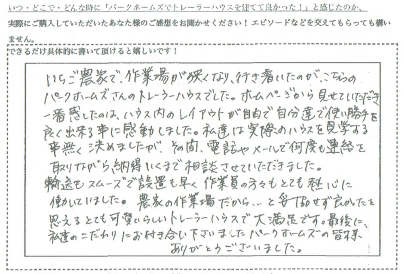 いつ・どこで・どんな時に「パークホームズでトレーラーハウスを建てて良かった！」と感じたのか、
実際にご購入していただいたあなた様のご感想をお聞かせください！エピソードなどを交えてもらっても構い
ません。
できるだけ具体的に書いて頂けると嬉しいです！
いちご農家で、作業場が狭くなり、行き着いたのが、こちらの
パークホームズさんのトレーラーハウスでした。ホームページから見せていただき
一番感したのは、ハウス内のレイアウトが自由で自分達で使い勝手を
良く出来る事に感動しました。私達は実際のハウスを見学する
事無く決めましたが、その間、電話やメールで何度も連絡を
取りながら、納得いくまで相談させていただきました。
輸送もスムーズで設置も早く作業員の方々もとても熱心に
働いていました。農家の作業場だから…と妥協せず良かったと
思えるとても可愛いらしいトレーラーハウスで大満足です。最後に、
私達のこだわりにお付き合い下さいましたパークホームズの皆様、
ありがとうございました。